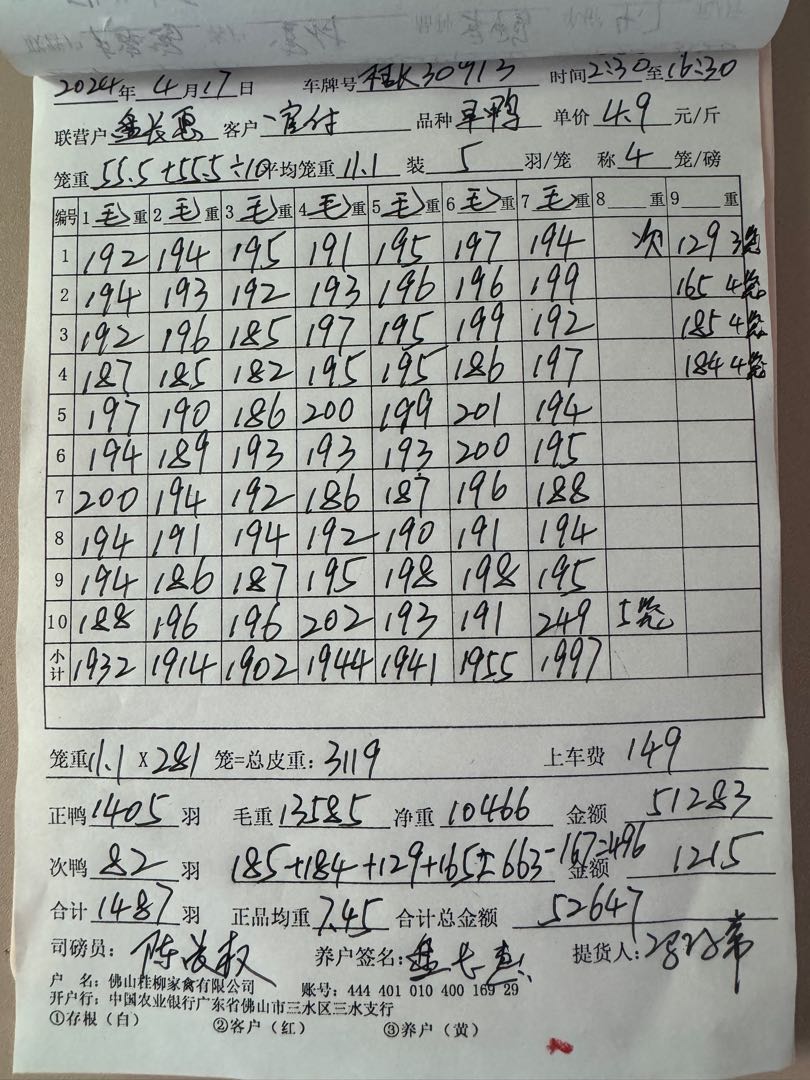 2024年 4 月 17 日 车牌号 桂K30913 时间 2:30 至 16:30
联营户 盘长惠 客户 官付 品种 旱鸭 单价 4.9 元/斤
笼重 55.5+55.5÷10 平均笼重 11.1 装 5 羽/笼 称 4 笼/磅
编号 1 毛 重 2 毛 重 3 毛 重 4 毛 重 5 毛 重 6 毛 重 7 毛 重 8 重 9 重
1 192 194 195 191 195 197 194 次 129 3笼
2 194 193 192 193 196 196 199 165 4笼
3 192 196 185 197 195 199 192 185 4笼
4 187 185 182 195 195 186 197 184 4笼
5 197 190 186 200 199 201 194
6 194 189 193 193 193 200 195
7 200 194 192 186 187 196 188
8 194 191 194 192 190 191 194
9 194 186 187 195 198 198 195
10 188 196 196 202 193 191 249 5笼
小计 1932 1914 1902 1944 1941 1955 1997
笼重 11.1 X 281 笼=总皮重: 3119 上车费 149
正鸭 1405 羽 毛重 13585 净重 10466 金额 51283
次鸭 82 羽 185+184+129+165=663-167=496 金额 1215
合计 1487 羽 正品均重 7.45 合计总金额 52647
司磅员: 陈 权 养户签名: 盘长惠 提货人:
户 名: 佛山桂柳家禽有限公司 账号: 444 401 010 400 169 29
开户行: 中国农业银行广东省佛山市三水区三水支行
①存根(白) ②客户(红) ③养户(黄)